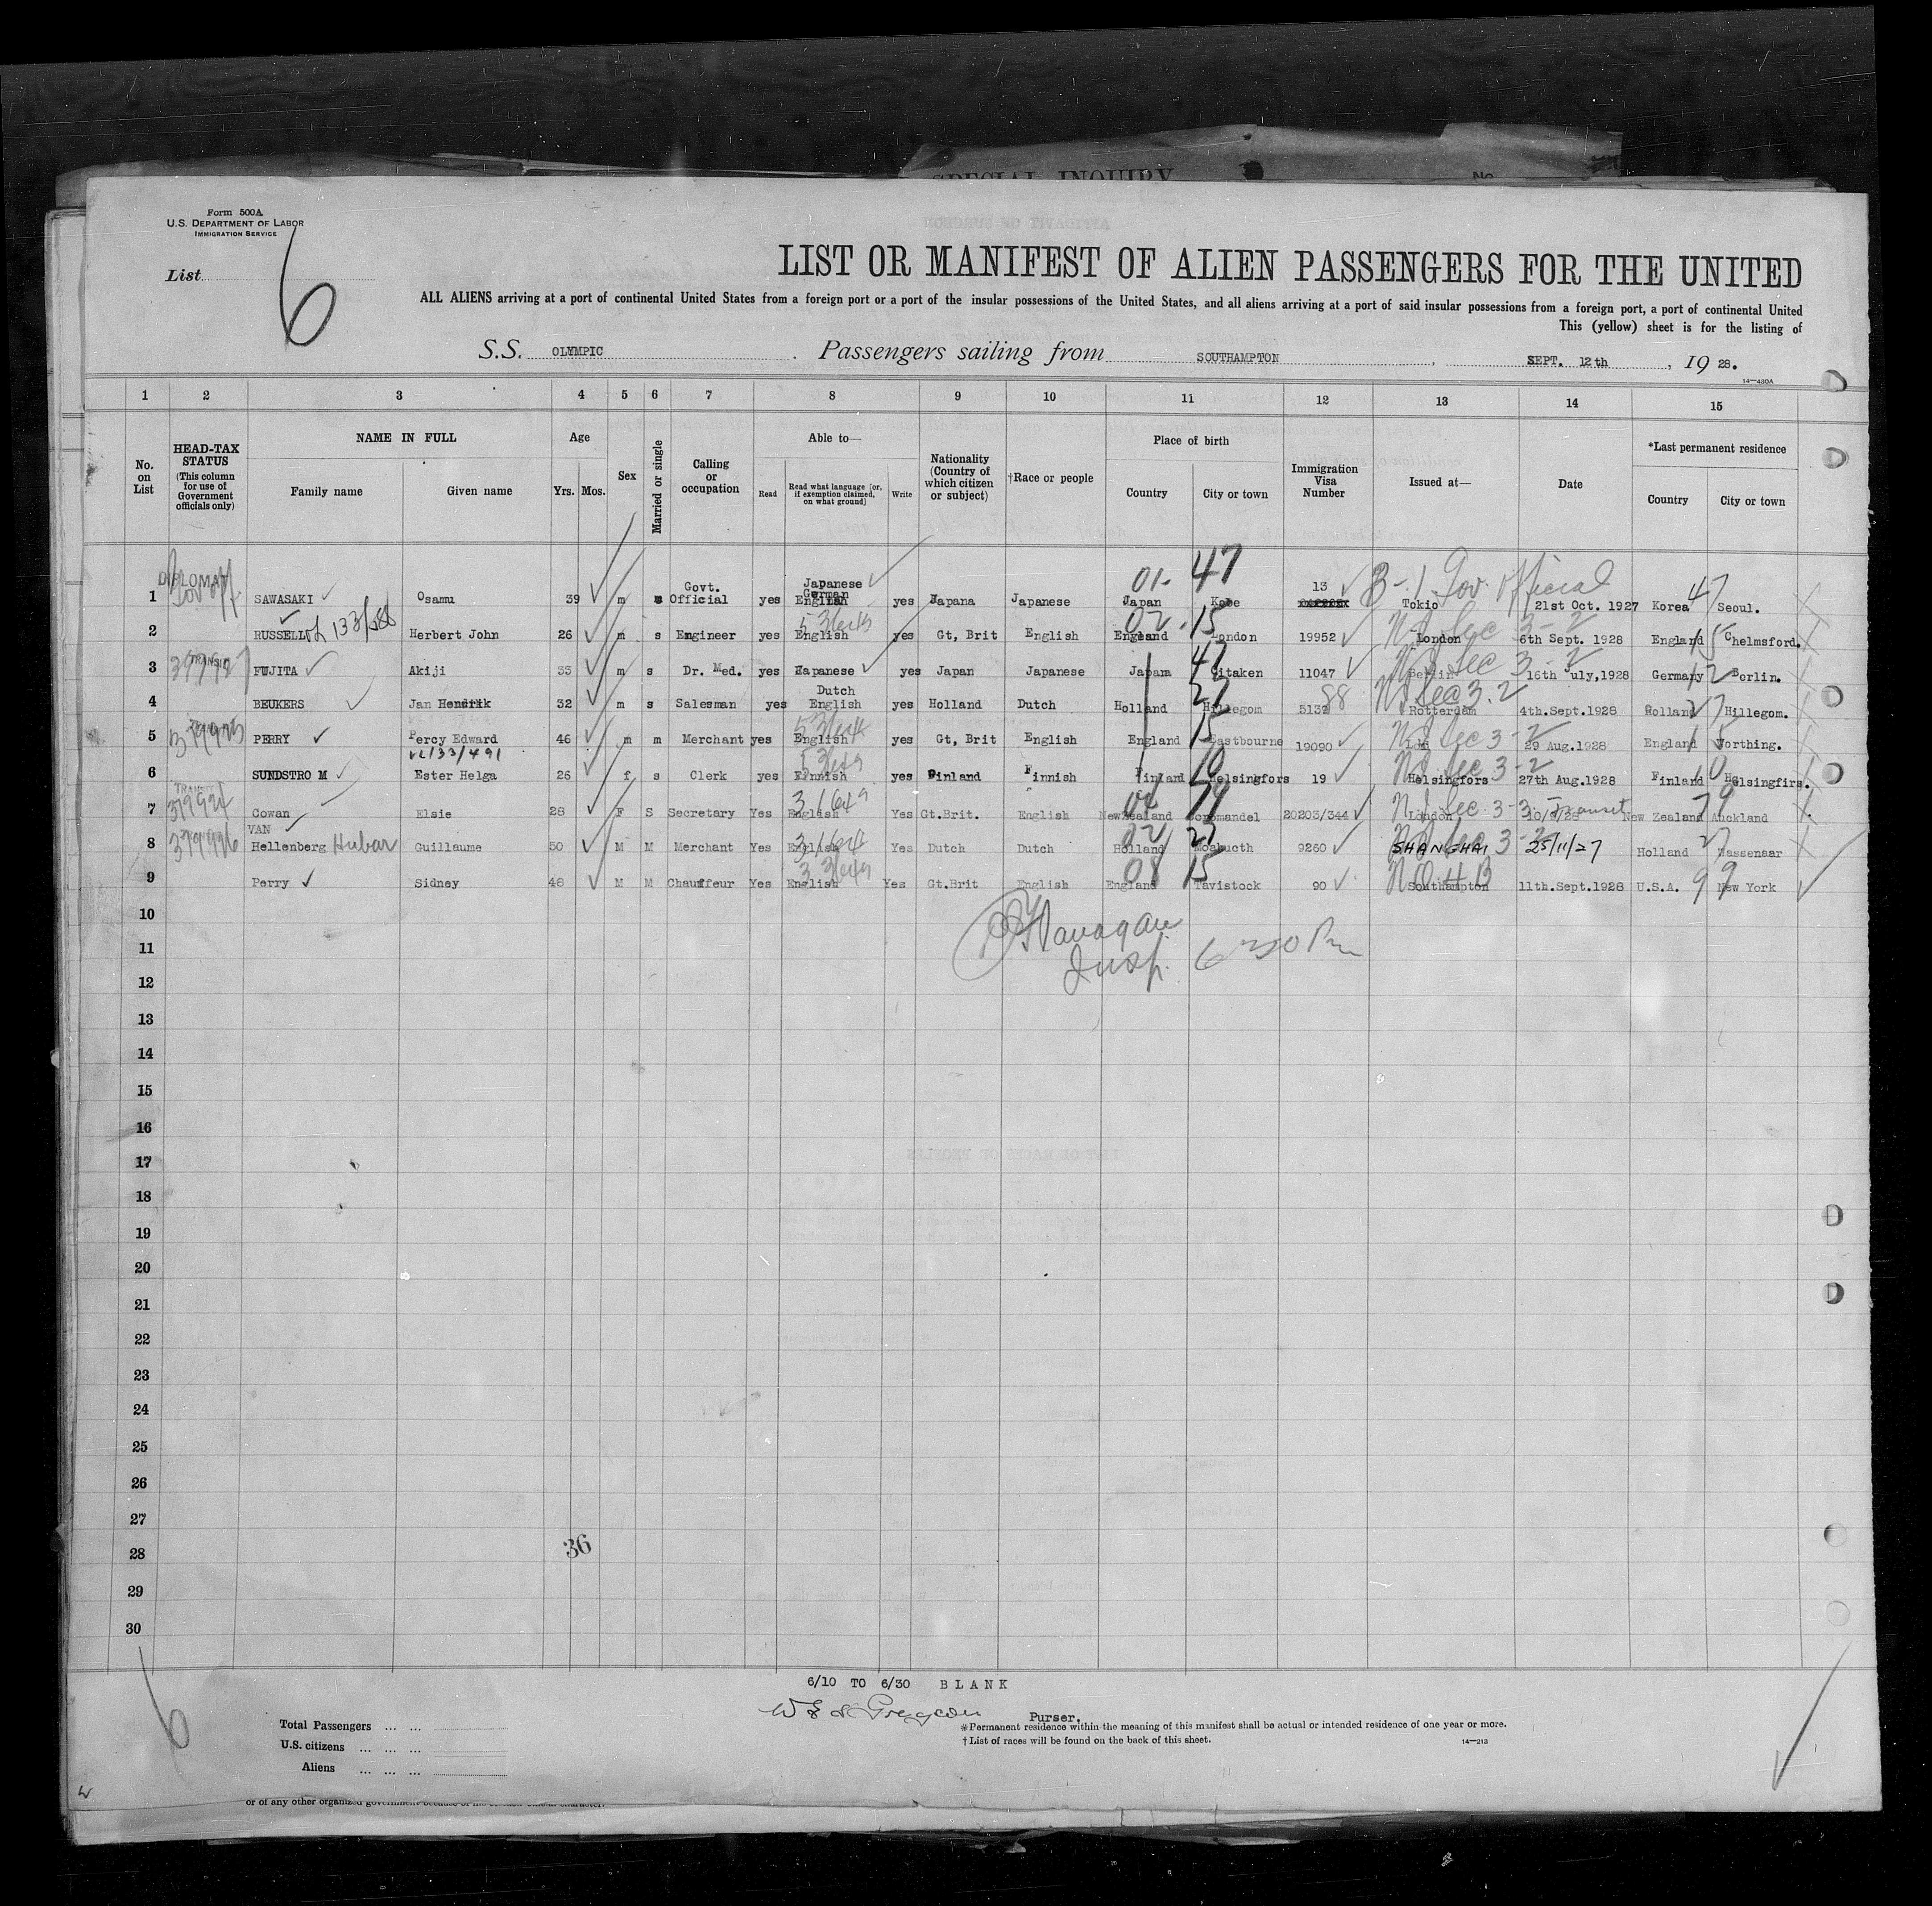 SPECIAL INQUIRY
No.
Form 500A
U.S. DEPARTMENT OF LABOR
IMMIGRATION SERVICE
List 6
LIST OR MANIFEST OF ALIEN PASSENGERS FOR THE UNITED
ALL ALIENS arriving at a port of continental United States from a foreign port or a port of the insular possessions of the United States, and all aliens arriving at a port of said insular possessions from a foreign port, a port of continental United
This (yellow) sheet is for the listing of
S.S. OLYMPIC . Passengers sailing from SOUTHAMPTON , SEPT. 12th , 19 28.
14—430A
1 2 3 4 5 6 7 8 9 10 11 12 13 14 15
No. on List
HEAD-TAX STATUS (This column for use of Government officials only)
NAME IN FULL Family name Given name
Age Yrs. Mos.
Sex
Married or single
Calling or occupation
Able to— Read Read what language [or, if exemption claimed, on what ground] Write
Nationality (Country of which citizen or subject)
†Race or people
Place of birth Country City or town
Immigration Visa Number
Issued at—
Date
*Last permanent residence Country City or town
1 DIPLOMAT Gov off SAWASAKI Osamu 39 m s Govt. Official yes Japanese German English yes Japana Japanese 01- 47 Japan Kobe 13 3-1 Gov. Official Tokio 21st Oct. 1927 Korea 47 Seoul.
2 RUSSELL Herbert John 26 m s Engineer yes English yes Gt, Brit English 02-15 England London 19952 N I Sec 3-2 London 6th Sept. 1928 England 15 Chelmsford.
3 TRANSIT FUJITA Akiji 33 m s Dr. Med. yes Japanese yes Japan Japanese 47 Japam Citaken 11047 N I Sec 3-2 Berlin 16th uly,1928 Germany 12 Borlin.
4 BEUKERS Jan Hendrik 32 m s Salesman yes Dutch English yes Holland Dutch 27 Holland Hillegom 5132 88 N I Sec 3.2 Rotterdam 4th.Sept.1928 Holland 27 Hillegom.
5 PERRY Percy Edward 46 m m Merchant yes English yes Gt, Brit English 15 England Eastbourne 19090 N I Sec 3-2 29 Aug.1928 England 15 Worthing.
6 SUNDSTRO M VL133/491 Ester Helga 26 f s Clerk yes Finnish yes Finland Finnish 10 Finland Helsingfors 19 N I Sec 3-2 Helsingfors 27th Aug.1928 Finland 10 Helsingfirs.
7 TRANSIT Cowan Elsie 28 F S Secretary Yes English 31649 Yes Gt.Brit. English 79 NewZealand Coromandel 20203/344 N I Sec 3-3 Transit London 10/9/28 New Zealand 79 Auckland
8 379926 VAN Hellenberg Hubar Guillaume 50 M M Merchant Yes English Yes Dutch Dutch 02 27 Holland 9260 SHANGHAI 3-2 25/11/27 Holland 27 Wassenaar
9 Perry Sidney 48 M M Chauffeur Yes English Yes Gt.Brit English 08 15 England Tavistock 90 Southampton 11th.Sept.1928 U.S.A. 99 New York
10
Flanagan
11
Insp. 6 30 Pm
12
13
14
15
16
17
18
19
20
21
22
23
24
25
26
27
28 36
29
30
6/10 TO 6/30 BLANK
Purser.
Total Passengers ... ...
U.S. citizens ... ... ...
Aliens ... ... ...
*Permanent residence within the meaning of this manifest shall be actual or intended residence of one year or more.
†List of races will be found on the back of this sheet.
14—213
6
or of any other organized government because of